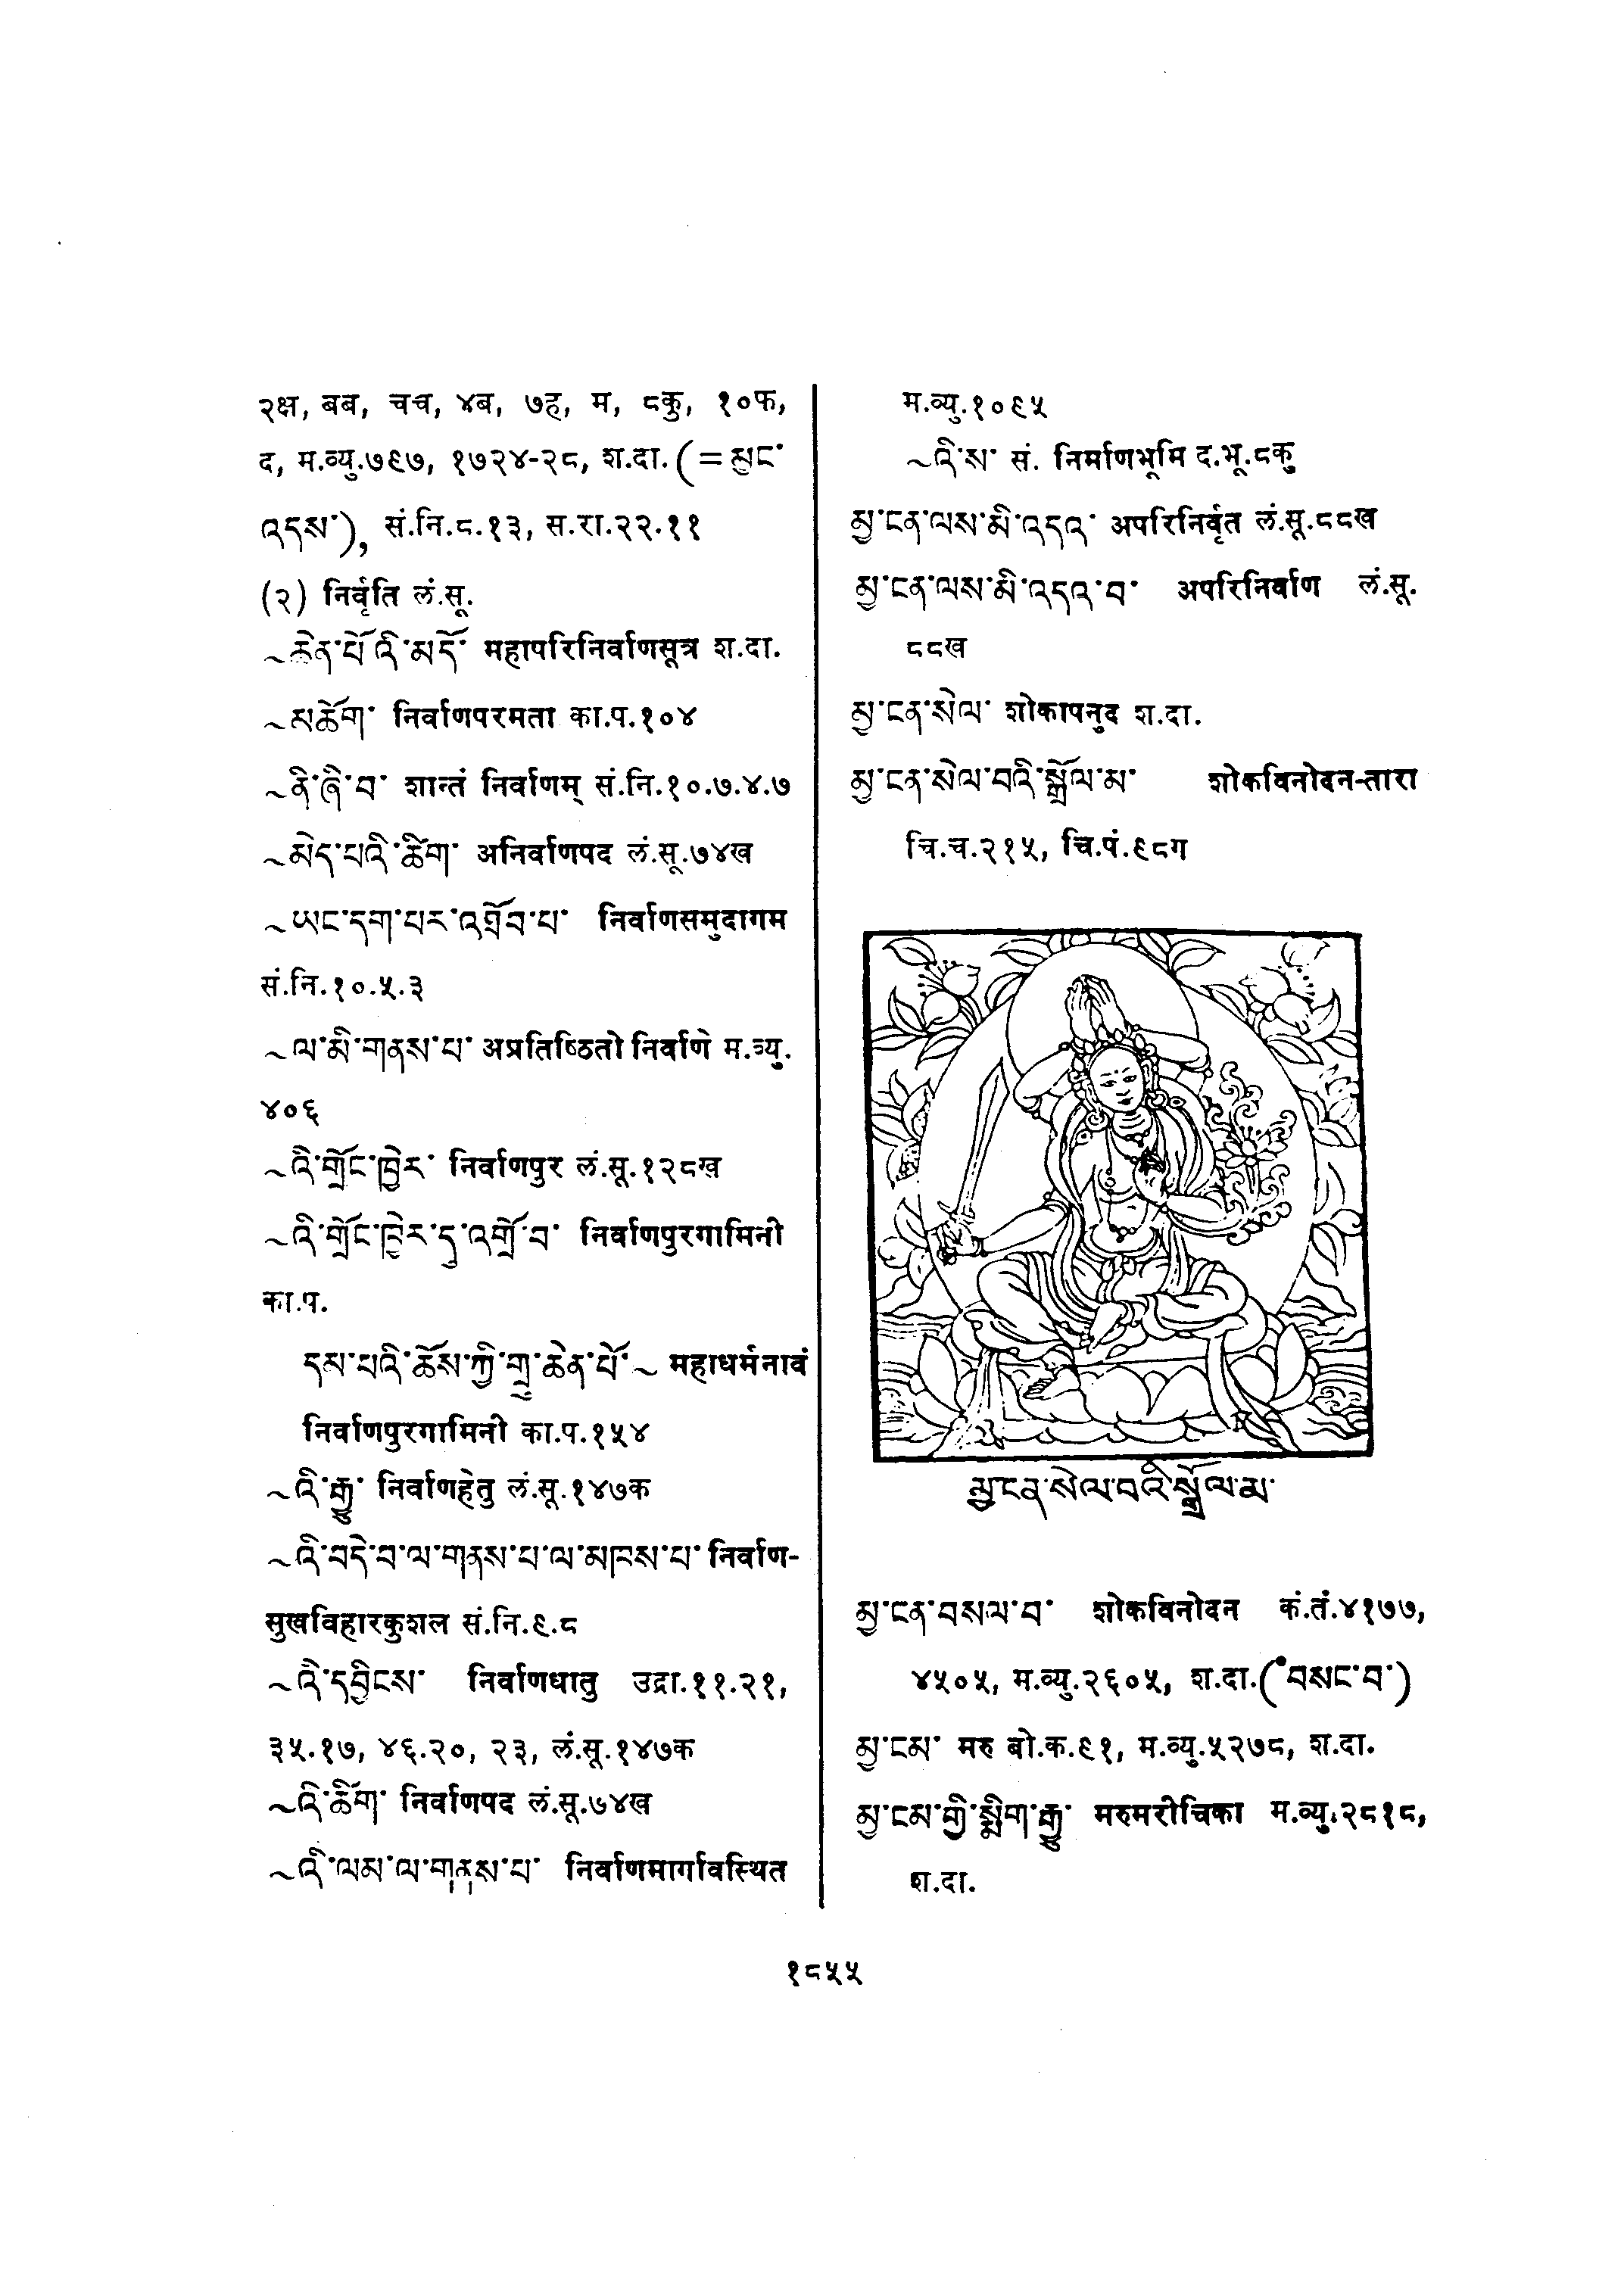 २क्ष, बब, चच, ४ब, ७ह, म, ८कु, १०फ,
द, म.व्यु.७९७, १७२४-२८, श.दा. (= མྱང་
འདས་), सं.नि.८.१३, स.रा.२२.११
(२) निर्वृति लं.सू.
~ཆེན་པོའི་མདོ་ महापरिनिर्वाणसूत्र श.दा.
~མཆོག་ निर्वाणपरमता का.प.१०४
~ནི་ཞི་བ་ शान्तं निर्वाणम् सं.नि.१०.७.४.७
~མེད་པའི་ཚིག་ अनिर्वाणपद लं.सू.७४ख
~ཡང་དག་པར་འགྲོབ་པ་ निर्वाणसमुदागम
सं.नि.१०.५.३
~ལ་མི་གནས་པ་ अप्रतिष्ठितो निर्वाणे म.व्यु.
४०६
~འི་གྲོང་ཁྱེར་ निर्वाणपुर लं.सू.१२८ख
~འི་གྲོང་ཁྱེར་དུ་འགྲོ་བ་ निर्वाणपुरगामिनी
का.प.
དམ་པའི་ཆོས་ཀྱི་གྲུ་ཆེན་པོ་~ महाधर्मनावं
निर्वाणपुरगामिनी का.प.१५४
~འི་རྒྱུ་ निर्वाणहेतु लं.सू.१४७क
~འི་བདེ་བ་ལ་གནས་པ་ལ་མཁས་པ་ निर्वाण-
सुखविहारकुशल सं.नि.९.८
~འི་དབྱིངས་ निर्वाणधातु उद्रा.११.२१,
३५.१७, ४६.२०, २३, लं.सू.१४७क
~འི་ཚིག་ निर्वाणपद लं.सू.७४ख
~འི་ལམ་ལ་གནས་པ་ निर्वाणमार्गावस्थित
म.व्यु.१०९५
~འི་ས་ सं. निर्माणभूमि द.भू.८कु
མྱ་ངན་ལས་མི་འདའ་ अपरिनिर्वृत लं.सू.८८ख
མྱ་ངན་ལས་མི་འདའ་བ་ अपरिनिर्वाण लं.सू.
८८ख
མྱ་ངན་སེལ་ शोकापनुद श.दा.
མྱ་ངན་སེལ་བའི་སྒྲོལ་མ་ शोकविनोदन-तारा
चि.च.२१५, चि.पं.९८ग
མྱ་ངན་སེལ་བའི་སྒྲོལ་མ་
མྱ་ངན་བསལ་བ་ शोकविनोदन कं.तं.४१७७,
४५०५, म.व्यु.२६०५, श.दा.(°བསང་བ་)
མྱ་ངམ་ मरु बो.क.९१, म.व्यु.५२७८, श.दा.
མྱ་ངམ་གྱི་སྨིག་རྒྱུ་ मरुमरीचिका म.व्यु.२८१८,
श.दा.
१८५५